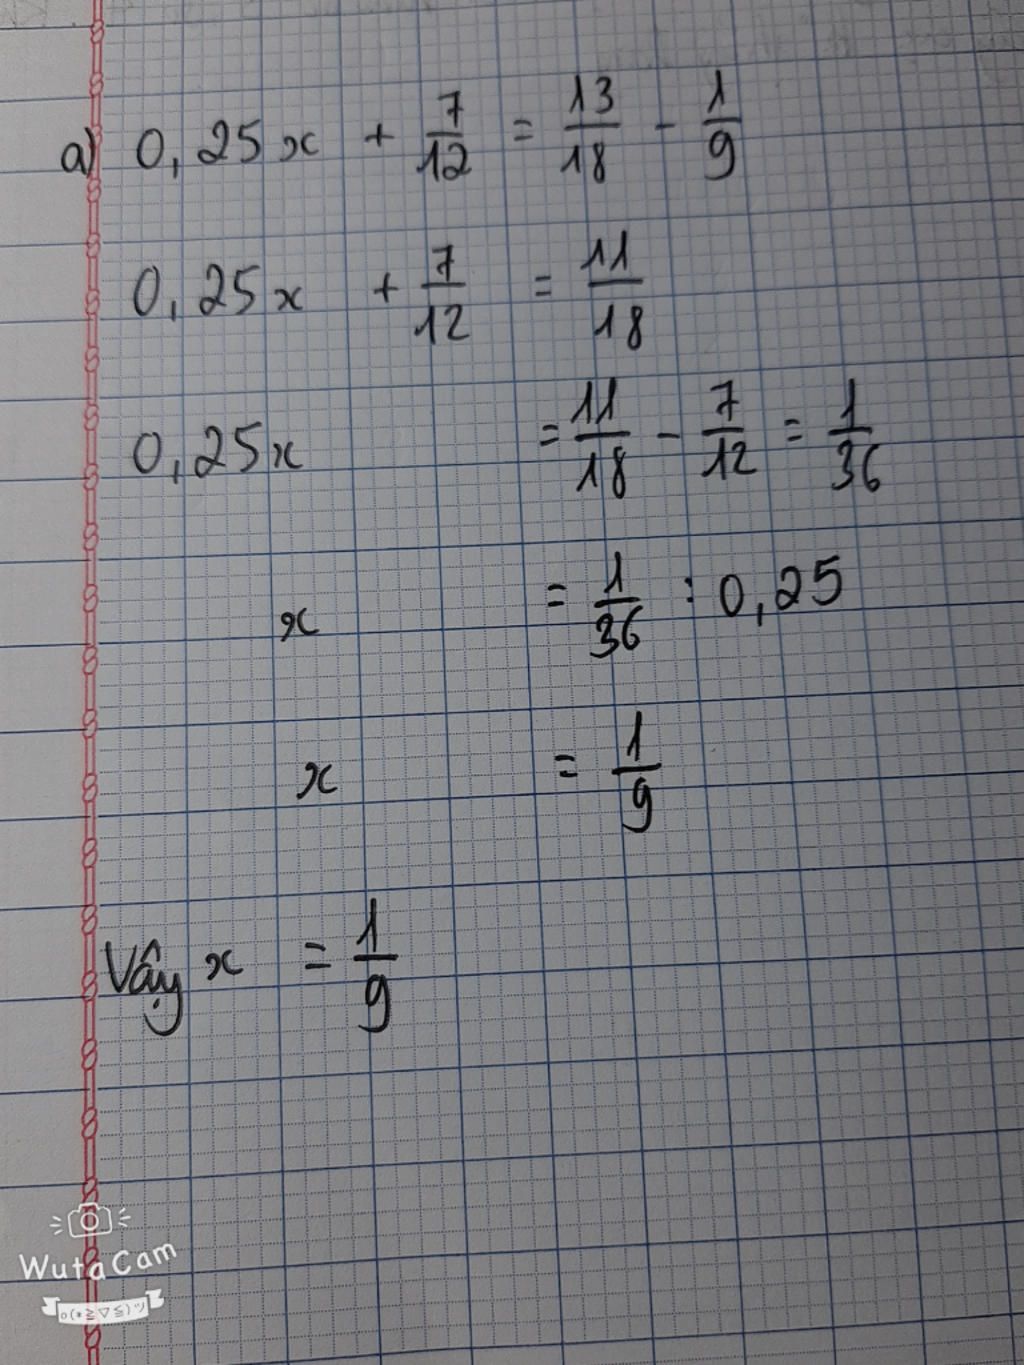 a) 0,25x + 7/12 = 13/18 - 1/9
0,25x + 7/12 = 11/18
0,25x = 11/18 - 7/12 = 1/36
x = 1/36 : 0,25
x = 1/9
Vậy x = 1/9
WutaCam
o(*≧▽≦)ツ